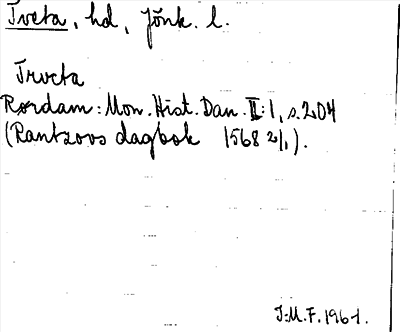 Tveta, hd, Jönk. l.
Trveta
Rørdam: Mon. Hist. Dan. II:1, s.204
(Rantzovs dagbok 1568 2/1).
J.M.F. 1961.